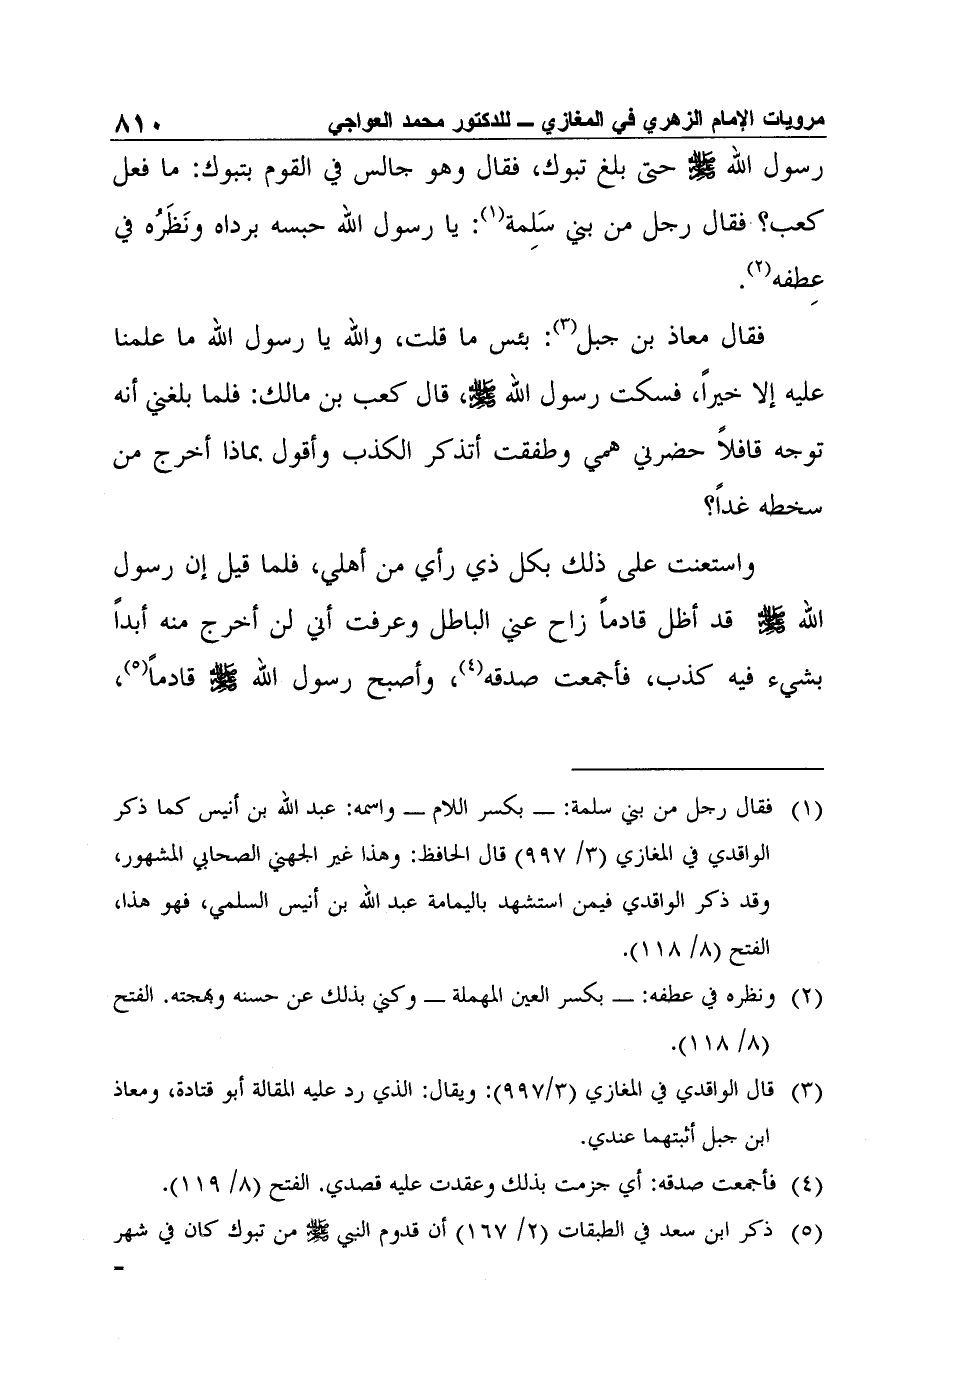 مرويات الإمام الزهري في المغازي ــ للدكتور محمد العواجي ٨١٠
رسول الله ﷺ حتى بلغ تبوك، فقال وهو جالس في القوم بتبوك: ما فعل
كعب؟ فقال رجل من بني سَلِمة(١): يا رسول الله حبسه برداه ونَظَرُه في
عِطفه(٢).
فقال معاذ بن جبل(٣): بئس ما قلت، والله يا رسول الله ما علمنا
عليه إلا خيراً، فسكت رسول الله ﷺ، قال كعب بن مالك: فلما بلغني أنه
توجه قافلاً حضرني همي وطفقت أتذكر الكذب وأقول بماذا أخرج من
سخطه غداً؟
واستعنت على ذلك بكل ذي رأي من أهلي، فلما قيل إن رسول
الله ﷺ قد أظل قادماً زاح عني الباطل وعرفت أني لن أخرج منه أبداً
بشيء فيه كذب، فأجمعت صدقه(٤)، وأصبح رسول الله ﷺ قادماً(٥)،
(١) فقال رجل من بني سلمة: ــ بكسر اللام ــ واسمه: عبد الله بن أنيس كما ذكر
الواقدي في المغازي (٣/ ٩٩٧) قال الحافظ: وهذا غير الجهني الصحابي المشهور،
وقد ذكر الواقدي فيمن استشهد باليمامة عبد الله بن أنيس السلمي، فهو هذا،
الفتح (٨/ ١١٨).
(٢) ونظره في عطفه: ــ بكسر العين المهملة ــ وكني بذلك عن حسنه وبهجته. الفتح
(٨/ ١١٨).
(٣) قال الواقدي في المغازي (٩٩٧/٣): ويقال: الذي رد عليه المقالة أبو قتادة، ومعاذ
ابن جبل أثبتهما عندي.
(٤) فأجمعت صدقه: أي جزمت بذلك وعقدت عليه قصدي. الفتح (٨/ ١١٩).
(٥) ذكر ابن سعد في الطبقات (٢/ ١٦٧) أن قدوم النبي ﷺ من تبوك كان في شهر
=